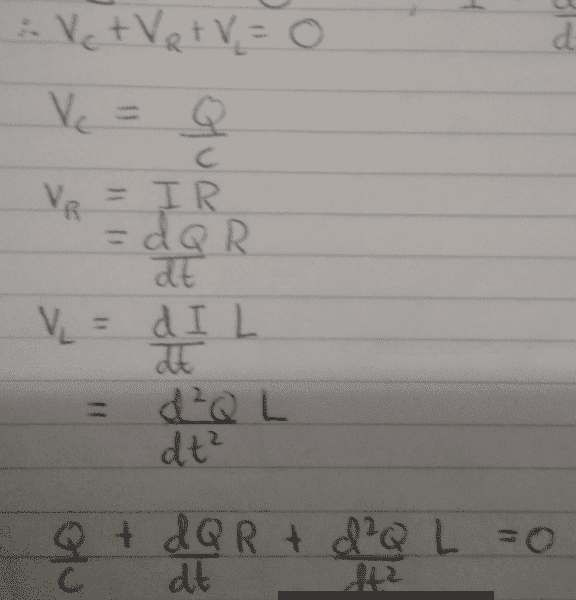 ∴ V_C + V_R + V_L = 0
V_C = Q/C
V_R = I R
= dQ/dt R
V_L = dI/dt L
= d²Q/dt² L
Q/C + dQ/dt R + d²Q/dt² L = 0